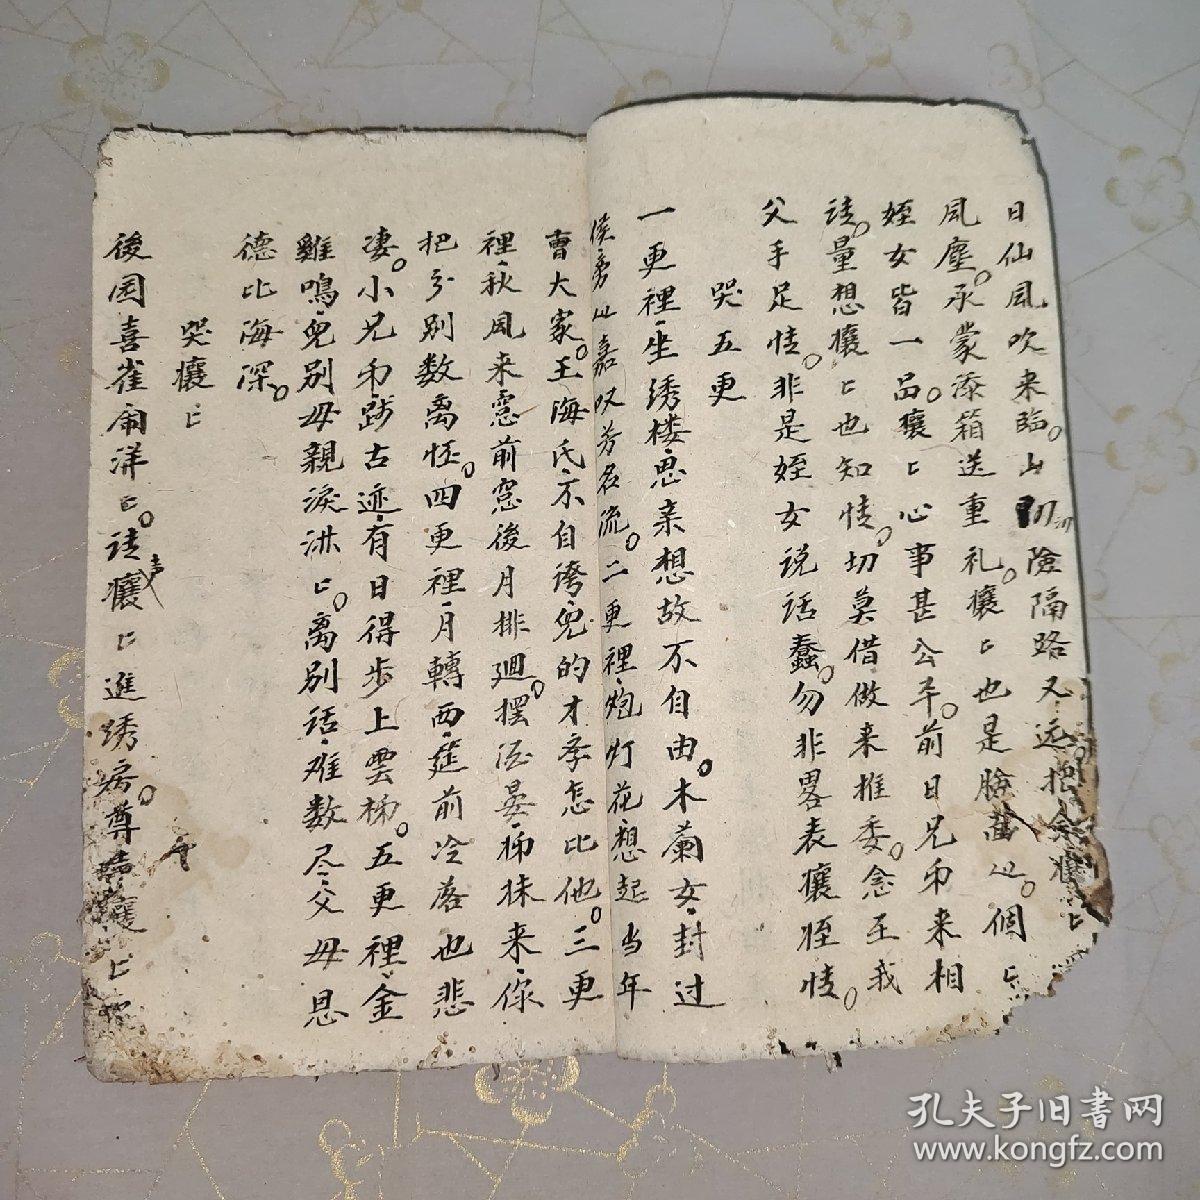 日仙风吹来臨。山切險隔路又远抱余孃〻
风塵。承蒙添箱送重礼。孃〻也是臉苗㐲。個〻
姪女皆一品。孃〻心事甚公平。前日兄弟来相
请。量想孃〻也知情。切莫借做来推委。念至我
父手足情。非是姪女说话蠢。勿非畧表孃姪情。
哭五更
一更裡坐绣楼思亲想故不自由。木蘭女封过
侯。秀㐲嘉叹芳名流。二更裡炮灯花想起当年
曹大家。王海氏不自誇兒的才学怎比他。三更
裡秋风来窓前窓後月排廻。摆酒晏怖抹来你
把分别数离怀。四更裡月轉西筵前冷落也悲
凄。小兄弟跡古迹有日得步上雲梯。五更裡金
雞鳴兒别母親淚淋〻。离别话难数尽父母恩
德比海深。
哭孃〻
後园喜雀闹洋〻。请孃〻進绣房。尊声孃〻
孔夫子旧書网
www.kongfz.com